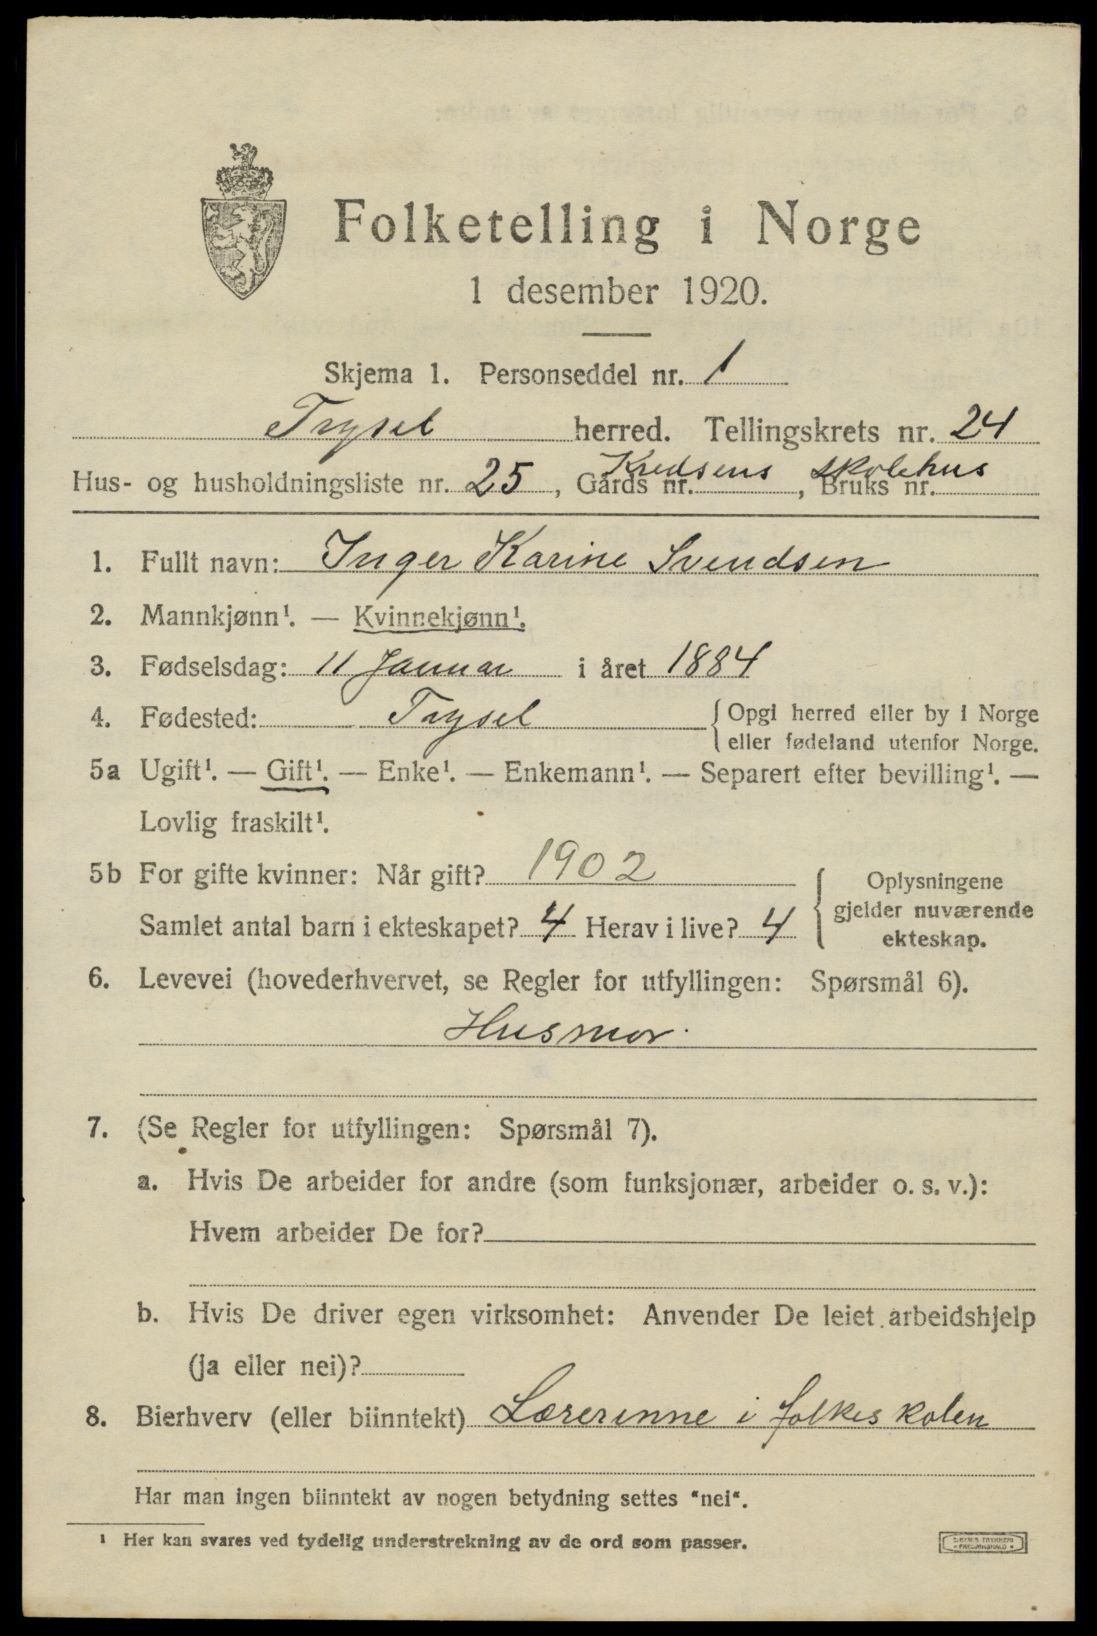 Folketelling i Norge
1 desember 1920.
Skjema 1. Personseddel nr. 1
Trysil herred. Tellingskrets nr. 24
Hus- og husholdningsliste nr. 25, Gårds nr. Kredsens, Bruks nr. skolehus
1. Fullt navn: Inger Karine Svendsen
2. Mannkjønn¹. — Kvinnekjønn¹.
3. Fødselsdag: 11 Januar i året 1884
4. Fødested: Trysil {Opgi herred eller by i Norge
eller fødeland utenfor Norge.
5a Ugift¹. — Gift¹. — Enke¹. — Enkemann¹. — Separert efter bevilling¹. —
Lovlig fraskilt¹.
5b For gifte kvinner: Når gift? 1902
Samlet antal barn i ekteskapet? 4 Herav i live? 4
{ Oplysningene
gjelder nuværende
ekteskap.
6. Levevei (hovederhvervet, se Regler for utfyllingen: Spørsmål 6).
Husmor.
7. (Se Regler for utfyllingen: Spørsmål 7).
a. Hvis De arbeider for andre (som funksjonær, arbeider o. s. v.):
Hvem arbeider De for?
b. Hvis De driver egen virksomhet: Anvender De leiet arbeidshjelp
(ja eller nei)?
8. Bierhverv (eller biinntekt) Lærerinne i folkeskolen
Har man ingen biinntekt av nogen betydning settes "nei".
¹ Her kan svares ved tydelig understrekning av de ord som passer.